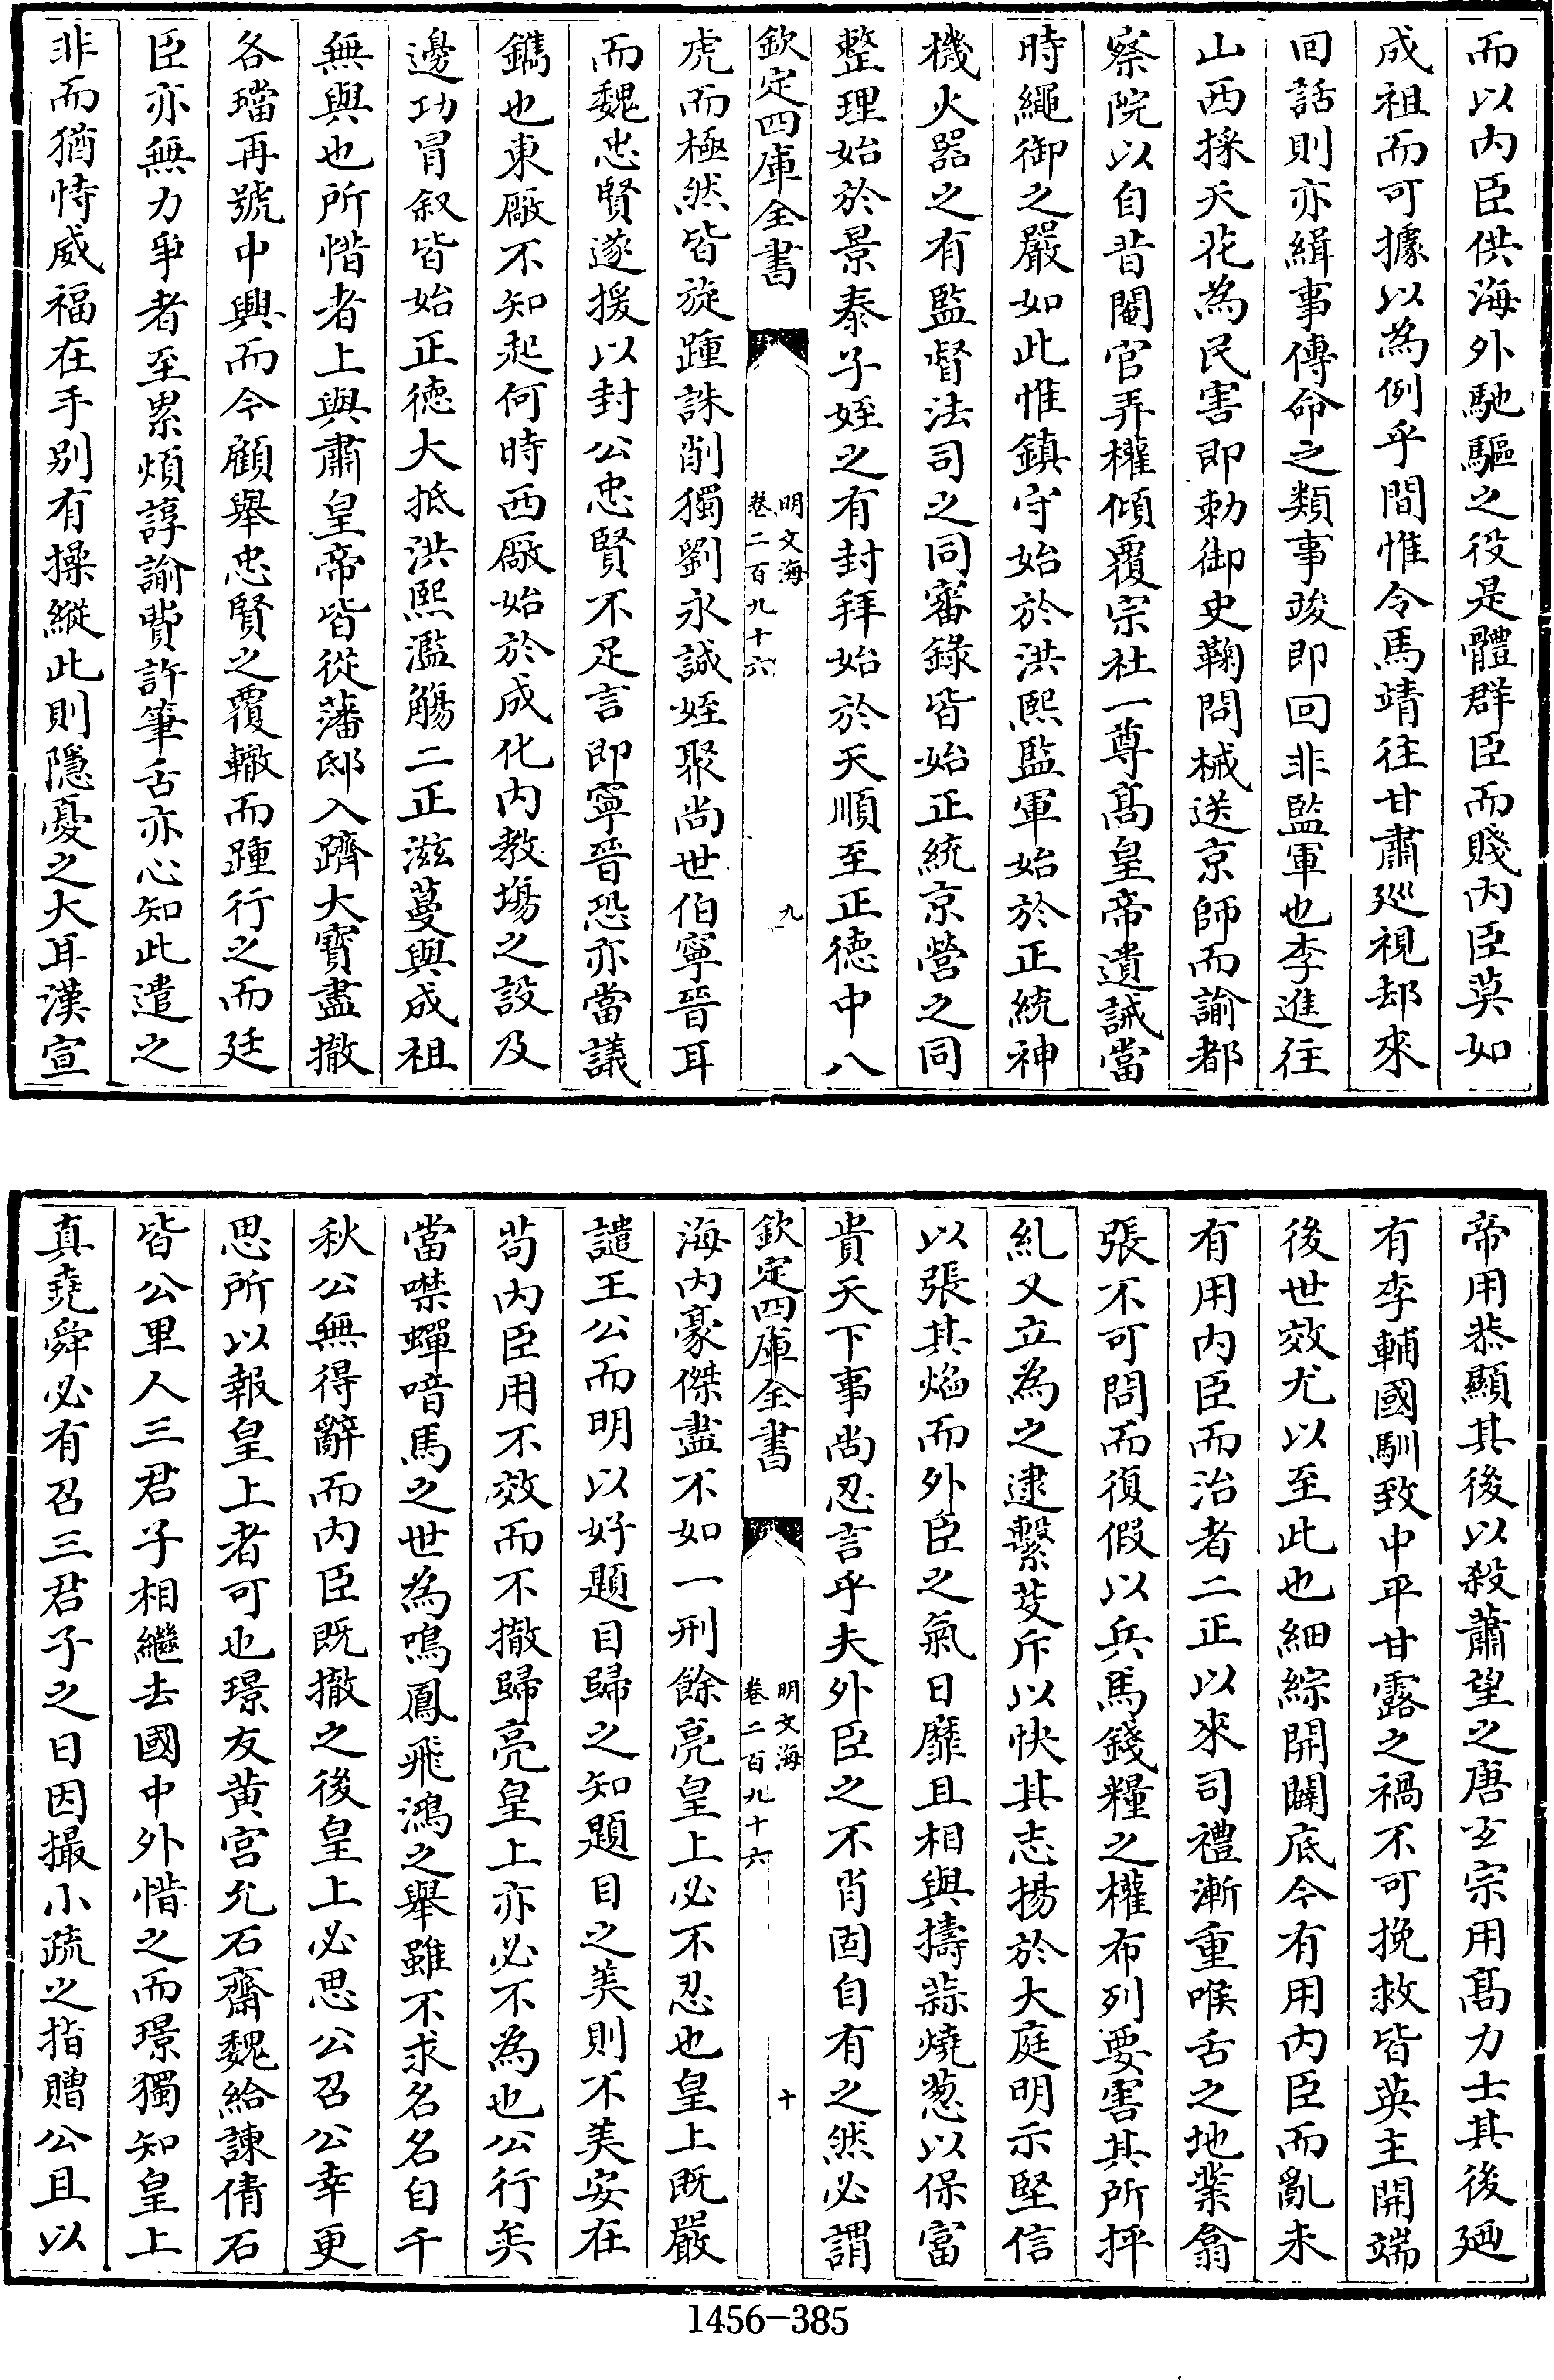 而以内臣供海外馳驅之役是體群臣而賤内臣莫如
成祖而可據以為例乎間惟令馬靖往甘肅廵視却來
回話則亦緝事傳命之類事竣即回非監軍也李進往
山西採天花為民害即勅御史鞫問械送京師而諭都
察院以自昔閹官弄權傾覆宗社一尊髙皇帝遺誡當
時繩御之嚴如此惟鎮守始於洪熙監軍始於正統神
機火器之有監督法司之同審錄皆始正統京營之同
整理始於景泰子姪之有封拜始於天順至正德中八
欽定四庫全書
明文海
卷二百九十六
九
虎而極然皆旋踵誅削獨劉永誠姪聚尚世伯寧晉耳
而魏忠賢遂援以封公忠賢不足言即寧晉恐亦當議
鐫也東廠不知起何時西廠始於成化内教塲之設及
邊功冐叙皆始正德大抵洪熙濫觴二正滋蔓與成祖
無與也所惜者上與肅皇帝皆從藩邸入躋大寳盡撤
各璫再號中興而今顧舉忠賢之覆轍而踵行之而廷
臣亦無力爭者至累煩諄諭費許筆舌亦心知此遣之
非而猶恃威福在手别有操縱此則隱憂之大耳漢宣
帝用恭顯其後以殺蕭望之唐玄宗用髙力士其後廼
有李輔國馴致中平甘露之禍不可挽救皆英主開端
後世效尤以至此也細綜開闢底今有用内臣而亂未
有用内臣而治者二正以來司禮漸重喉舌之地業翕
張不可問而復假以兵馬錢糧之權布列要害其所抨
糺又立為之逮繫芟斥以快其志揚於大庭明示堅信
以張其焰而外臣之氣日靡且相與擣蒜燒葱以保富
貴天下事尚忍言乎夫外臣之不肖固自有之然必謂
欽定四庫全書
明文海
卷二百九十六
十
海内豪傑盡不如一刑餘亮皇上必不忍也皇上既嚴
譴王公而明以好題目歸之知題目之美則不美安在
苟内臣用不效而不撤歸亮皇上亦必不為也公行矣
當噤蟬喑馬之世為鳴鳳飛鴻之舉雖不求名名自千
秋公無得辭而内臣既撤之後皇上必思公召公幸更
思所以報皇上者可也璟友黄宫允石齋魏給諫倩石
皆公里人三君子相繼去國中外惜之而璟獨知皇上
真堯舜必有召三君子之日因撮小疏之指贈公且以
1456-385